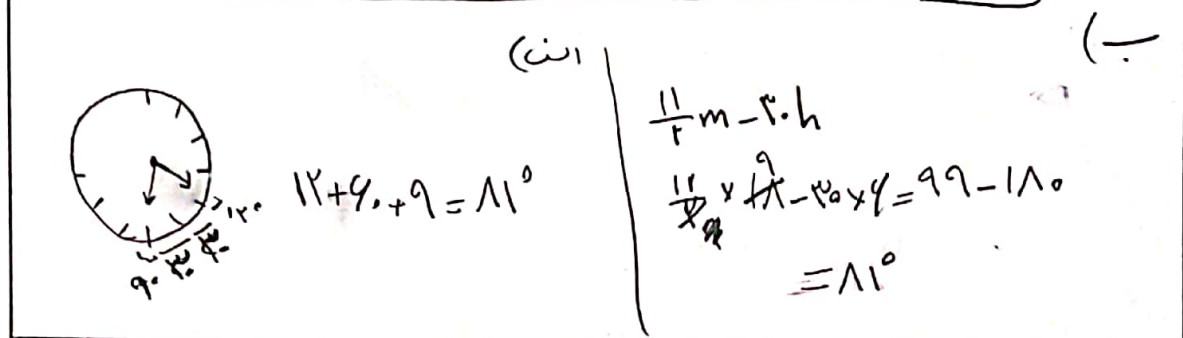 ب)
۱۱/۲ m - ۳۰h
۱۱/۲ × ۱۸ - ۳۰ × ۶ = ۹۹ - ۱۸۰
= ۸۱°
الف)
۱۲ + ۶۰ + ۹ = ۸۱°
۱۲°
۳۰
۳۰
۹°